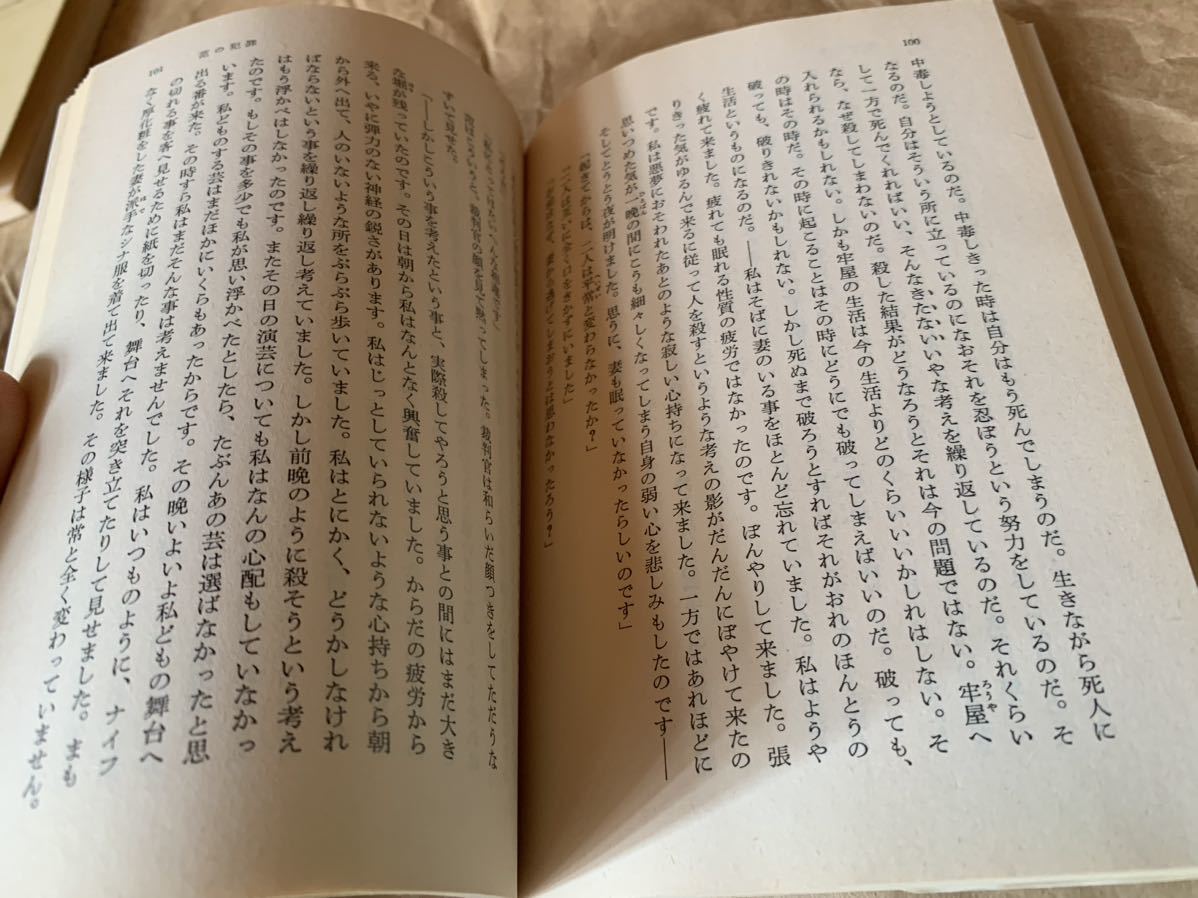 100
中毒しようとしているのだ。中毒しきった時は自分はもう死んでしまうのだ。生きながら死人に
なるのだ。自分はそういう所に立っているのになおそれを忍ぼうという努力をしているのだ。そ
して一方で死んでくれればいい、そんなきたないいやな考えを繰り返しているのだ。それくらい
なら、なぜ殺してしまわないのだ。殺した結果がどうなろうとそれは今の問題ではない。牢屋へ
入れられるかもしれない。しかも牢屋の生活は今の生活よりどのくらいいいかしれはしない。そ
の時はその時だ。その時に起こることはその時にどうにでも破ってしまえばいいのだ。破っても、
破っても、破りきれないかもしれない。しかし死ぬまで破ろうとすればそれがおれのほんとうの
生活というものになるのだ。――私はそばに妻のいる事をほとんど忘れていました。私はようや
く疲れて来ました。疲れても眠れる性質の疲労ではなかったのです。ぼんやりして来ました。張
りきった気がゆるんで来るに従って人を殺すというような考えの影がだんだんにぼやけて来たの
です。私は悪夢におそわれたあとのような寂しい心持ちになって来ました。一方ではあれほどに
思いつめた気が一晩の間にこうも細々しくなってしまう自身の弱い心を悲しみもしたのです――
そしてとうとう夜が明けました。思うに、妻も眠っていなかったらしいのです」
「起きてからは、二人は平常と変わらなかったか?」
「二人は互いに全く口をきかずにいました」
「お前はなぜ、妻から逃げてしまおうとは思わなかったろう?」
范の犯罪
101
すいて見せた。
范はこういうと、裁判官の顔を見て黙ってしまった。裁判官は和らいだ顔つきをしてただうな
「――しかしこういう事を考えたという事と、実際殺してやろうと思う事との間にはまだ大き
な堀が残っていたのです。その日は朝から私はなんとなく興奮していました。からだの疲労から
来る、いやに弾力のない神経の鋭さがあります。私はじっとしていられないような心持ちから朝
から外へ出て、人のいないような所をぶらぶら歩いていました。私はとにかく、どうかしなけれ
ばならないという事を繰り返し繰り返し考えていました。しかし前晩のように殺そうという考え
はもう浮かべはしなかったのです。またその日の演芸についても私はなんの心配もしていなかっ
たのです。もしその事を多少でも私が思い浮かべたとしたら、たぶんあの芸は選ばなかったと思
います。私どものする芸はまだほかにいくらもあったからです。その晩いよいよ私どもの舞台へ
出る番が来た。その時すら私はまだそんな事は考えませんでした。私はいつものように、ナイフ
の切れる事を客へ見せるために紙を切ったり、舞台へそれを突き立てたりして見せました。まも
なく厚化粧をした妻が派手なシナ服を着て出て来ました。その様子は常と全く変わっていません。